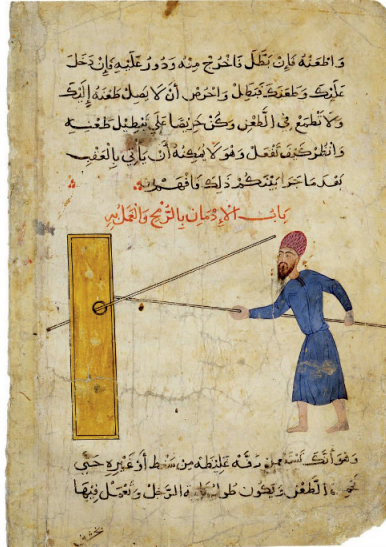 واطعنه فإن بطل فاخرج منه ودور عليه فإن دخل
عليك وطعنك فبطل واحرص أن لا يصل طعنه إليك
ولا تطمع في الطعن وكن حريصا على تبطيل طعنه
وانظر كيف تفعل وهو لا يمكنه أن يأتي بالعقب
بعد ما جرا بينكم ذلك فافهم
باب الإدمان بالرمح والعمل به
وهو أنك تستعمل دفه غليظه من سنط أو غيره حتى
الطعن ويكون طول قامة الرجل وتعمل فيها